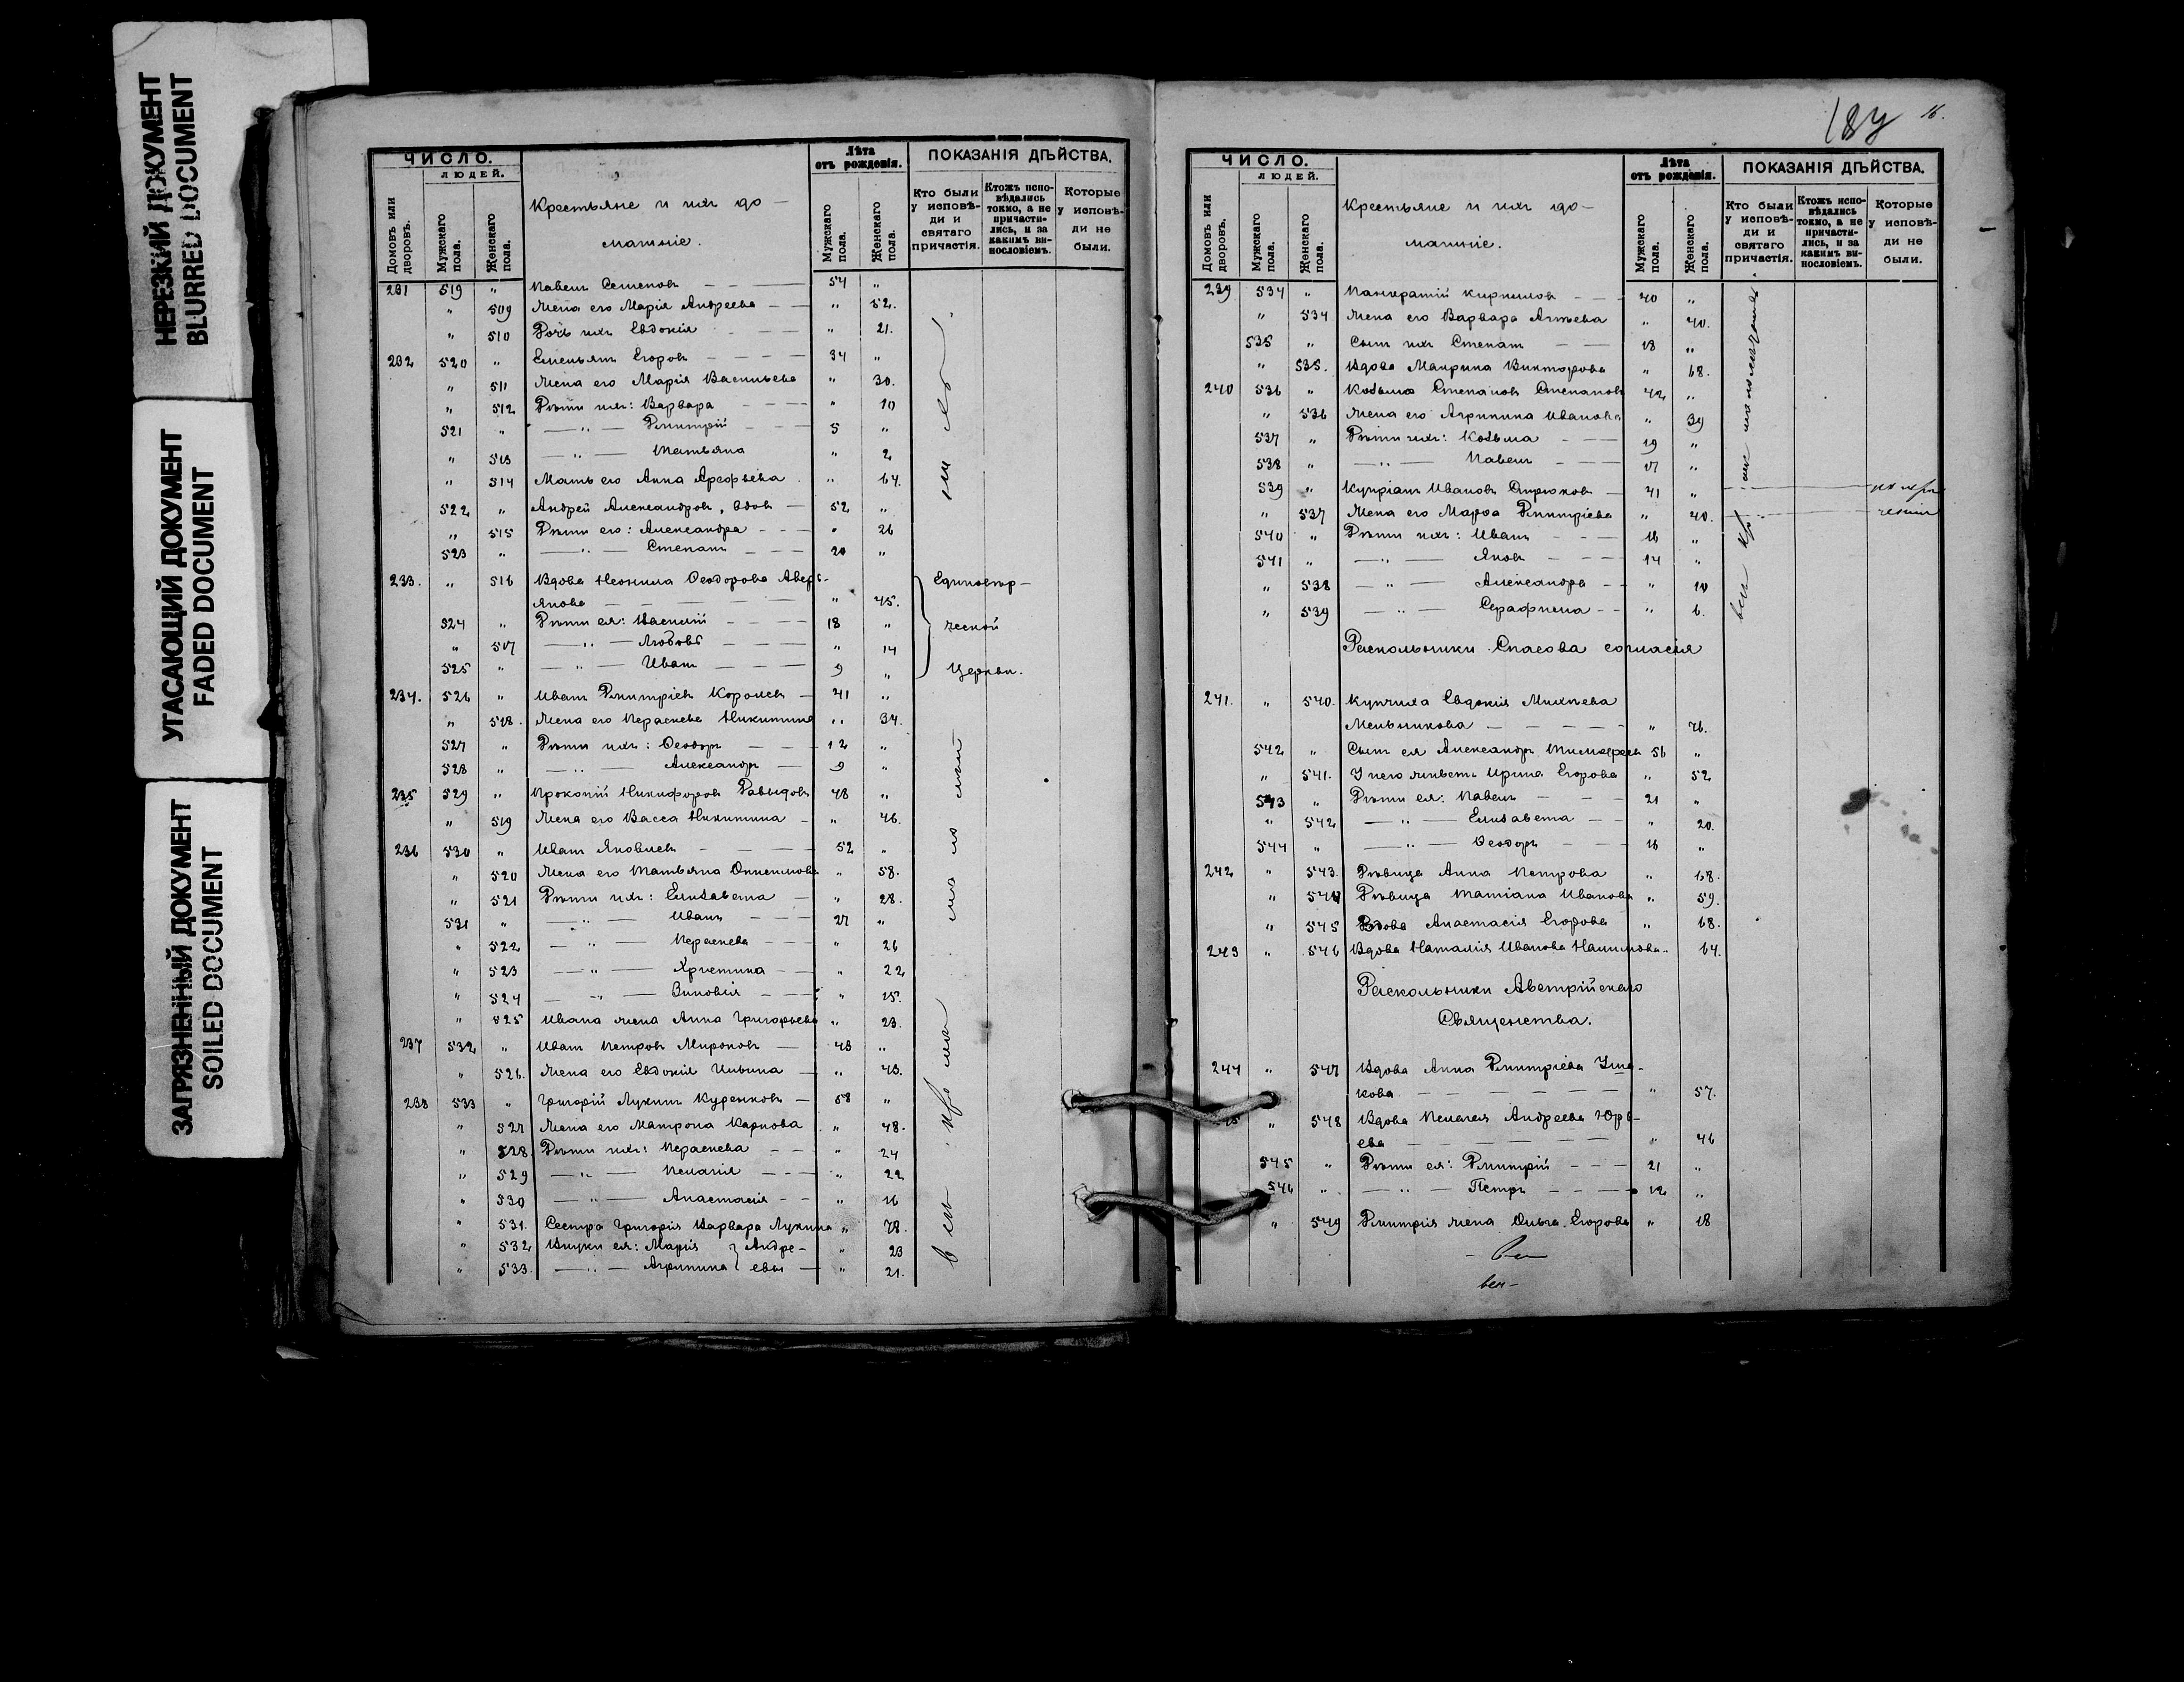 НЕРЕЗКИЙ ДОКУМЕНТ
BLURRED DOCUMENT
УГАСАЮЩИЙ ДОКУМЕНТ
FADED DOCUMENT
ЗАГРЯЗНЕННЫЙ ДОКУМЕНТ
SOILED DOCUMENT
ЧИСЛО.
ЛЮДЕЙ.
Домовъ или дворовъ.
Мужскаго пола.
Женскаго пола.
Крестьяне и ихъ до-
машніе.
Лѣта
отъ рожденія.
Мужскаго пола.
Женскаго пола.
ПОКАЗАНІЯ ДѢЙСТВА.
Кто были у исповѣди и святаго причастія.
Ктожъ исповѣдались токмо, а не причастились, и за какимъ винословіемъ.
Которые у исповѣди не были.
231 519 " Павелъ Семеновъ 54 "
" 509 Жена его Марія Андреева " 52.
" 510 Дочь ихъ Евдокія " 21.
232 520 " Емельянъ Егоровъ 34 "
" 511 Жена его Марія Васильева " 30.
" 512 Дѣти ихъ: Варвара " 10
521 " — " — Дмитрій 5 "
" 513 — " — Татьяна " 2
" 514 Мать его Анна Арефьева " 64.
522 " Андрей Александровъ, вдовъ 52 "
" 515 Дѣти его: Александра " 26
523 " — " — Степанъ 20 "
233. " 516 Вдова Неонила Ѳеодорова Аверь-
янова " 45.
524 " Дѣти ея: Василій 18 "
" 517 — " — Любовь " 14
525 " — " — Иванъ 9 "
Единовѣр-
ческой
Церкви.
234. 526 " Иванъ Дмитріевъ Королевъ 41 "
" 518. Жена его Параскева Никитина " 34.
527 " Дѣти ихъ: Ѳеодоръ 12 "
528 " — " — Александръ 9 "
235 529 " Прокопій Никифоровъ Давыдовъ 48 "
" 519 Жена его Васса Никитина " 46.
236 530 " Иванъ Яковлевъ 52 "
" 520 Жена его Татьяна Онисимова " 58.
" 521 Дѣти ихъ: Елизавета " 28.
531 " — " — Иванъ 27 "
" 522 — " — Параскева " 26
" 523 — " — Христина " 22
" 524 — " — Зиновія " 15.
" 525 Ивана жена Анна Григорьева " 23.
237 532 " Иванъ Петровъ Мироновъ 43 "
" 526. Жена его Евдокія Ильина " 43.
238 533 " Григорій Лукинъ Куренковъ 58 "
" 527 Жена его Матрона Карпова " 48.
" 528. Дѣти ихъ: Параскева " 24
" 529 — " — Пелагія " 22
" 530 — " — Анастасія " 16
" 531. Сестра Григорія Варвара Лукина " 78.
" 532 Внуки ея: Марія } Андре- " 23
" 533. — " — Агрипина } евы " 21.
187
16.
ЧИСЛО.
ЛЮДЕЙ.
Домовъ или дворовъ.
Мужскаго пола.
Женскаго пола.
Крестьяне и ихъ до-
машніе.
Лѣта
отъ рожденія.
Мужскаго пола.
Женскаго пола.
ПОКАЗАНІЯ ДѢЙСТВА.
Кто были у исповѣди и святаго причастія.
Ктожъ исповѣдались токмо, а не причастились, и за какимъ винословіемъ.
Которые у исповѣди не были.
239 534 " Панкратій Кирилловъ 40 "
" 534 Жена его Варвара " 40.
535 " Сынъ ихъ Степанъ 18 "
" 535. Вдова Маврина Викторова " 68.
240 536 " Козьма Степановъ Степановъ 42 "
" 536 Жена его Агрипина Иванова " 39
537 " Дѣти ихъ: Козьма 19 "
538 " — " — Павелъ 17 "
539 " Купріанъ Ивановъ 41 "
" 537 Жена его Марѳа Дмитріева " 40.
540 " Дѣти ихъ: Иванъ 16 "
541 " — " — Яковъ 14 "
" 538 — " — Александра " 10
" 539 — " — Серафима " 6.
Раскольники Спасова согласія
241. " 540. Купчиха Евдокія Михѣева
Мельникова " 76.
542 " Сынъ ея Александръ Тимофеевъ 56 "
" 541. У него живетъ Ирина Егорова " 52
543 " Дѣти ея: Павелъ 21 "
" 542 — " — Елизавета " 20.
544 " — " — Ѳеодоръ 16 "
242 " 543. Дѣвица Анна Петрова " 68.
" 544 Дѣвица Татіана Иванова " 59.
" 545 Вдова Анастасія Егорова " 68.
243 " 546 Вдова Наталія Иванова " 64.
Раскольники Австрійскаго
Священства.
244 " 547 Вдова Анна Дмитріева Уша-
кова " 57.
" 548 Вдова Пелагея Андреева Юрь-
ева " 46
545 " Дѣти ея: Дмитрій 21 "
546 " — " — Петръ 12 "
" 549 Дмитрія жена Ольга Егорова " 18